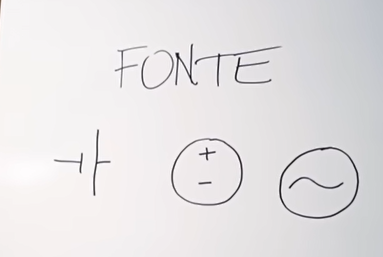 FONTE
+
-